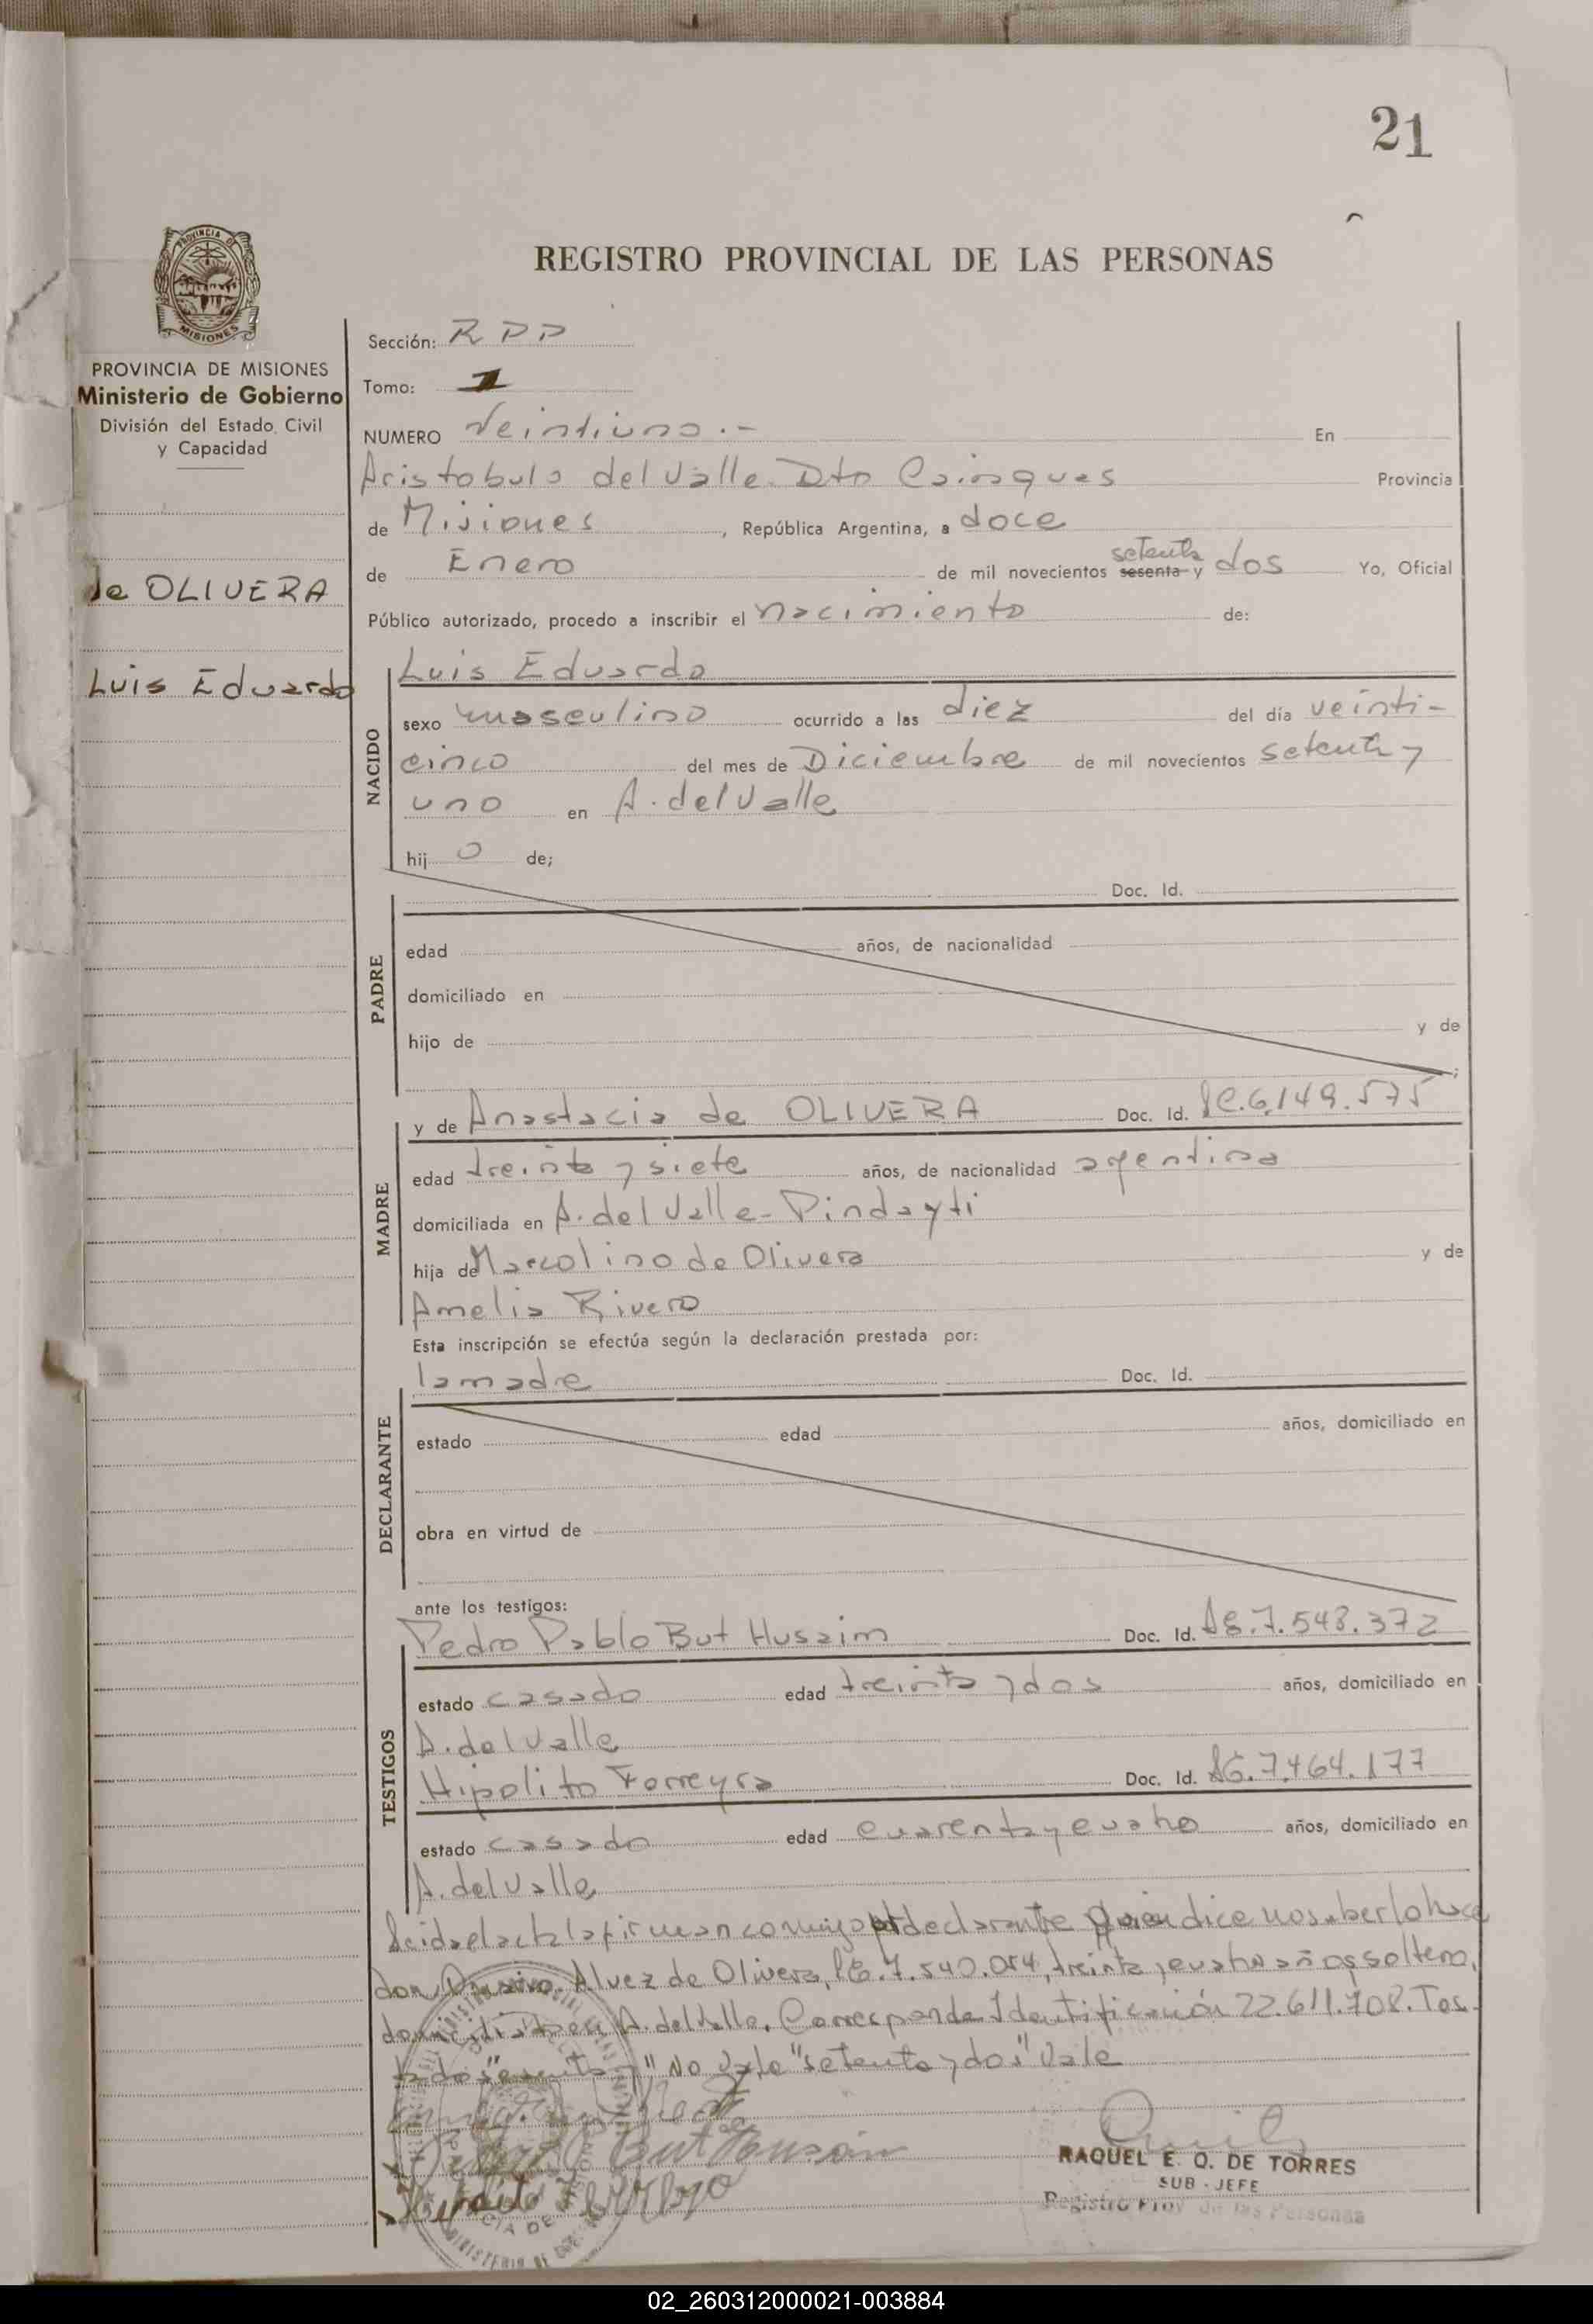 21
REGISTRO PROVINCIAL DE LAS PERSONAS
PROVINCIA DE MISIONES
Ministerio de Gobierno
División del Estado Civil
y Capacidad
de OLIVERA
Luis Eduardo
Sección: RPP
Tomo: 1
NUMERO Veintiuno.- En
Aristobulo del Valle Dto Cainguas Provincia
de Misiones, República Argentina, a doce
de Enero de mil novecientos sesenta y setenta dos Yo, Oficial
Público autorizado, procedo a inscribir el nacimiento de:
NACIDO
Luis Eduardo
sexo masculino ocurrido a las diez del día veinti-
cinco del mes de Diciembre de mil novecientos setenta y
uno en A. del Valle
hij o de;
PADRE
Doc. Id.
edad años, de nacionalidad
domiciliado en
hijo de y de
;
MADRE
y de Anastacia de OLIVERA Doc. Id. LC.6.149.575
edad treinta y siete años, de nacionalidad argentina
domiciliada en A. del Valle - Pindayti
hija de Marcolino de Olivera y de
Amelia Rivero
Esta inscripción se efectúa según la declaración prestada por:
DECLARANTE
la madre Doc. Id.
estado edad años, domiciliado en
obra en virtud de
ante los testigos:
TESTIGOS
Pedro Pablo But Husaim Doc. Id. LE.7.543.372
estado casado edad treinta y dos años, domiciliado en
A. del Valle
Hipolito Ferreyra Doc. Id. LE.7.464.177
estado casado edad cuarenta y cuatro años, domiciliado en
A. del Valle
Leida el acta la firman conmigo declarante Quien dice no saberlo hace
don Alvez de Olivera, LE.7.540.054, treinta y cuatro años soltero,
domiciliado en A. del Valle. Corresponde Identificación 22.611.708. Tes-
tado "sesenta y" No Vale "setenta y dos" Vale
But Husain
RAQUEL E. Q. DE TORRES
SUB - JEFE
Registro Prov de las Personas
02_260312000021-003884